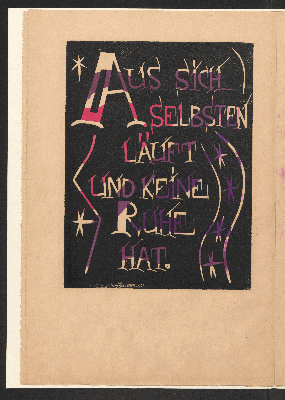 AUS SICH
SELBSTEN
LÄUFT
UND KEINE
RUHE
HAT.